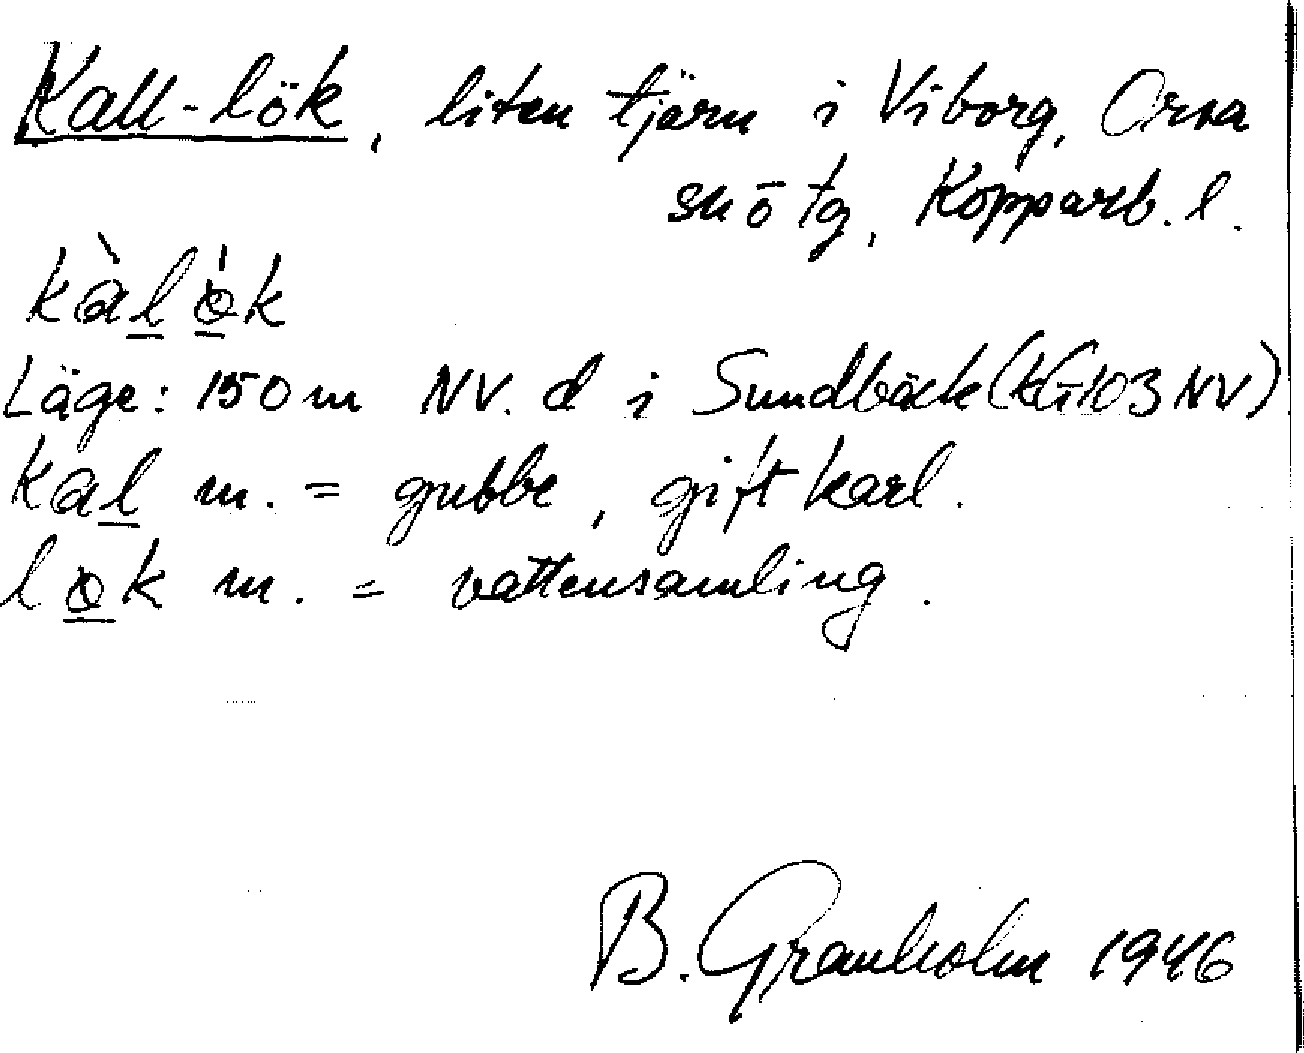 Kall-lök, liten tjärn i Viborg, Orsa
sn ō tg, Kopparb. l.
kàl ö̀k
Läge: 150 m NV. d i Sundbäck (kG 103 NV)
kal m. = gubbe, gift karl.
lök m. = vattensamling.
B. Granholm 1946